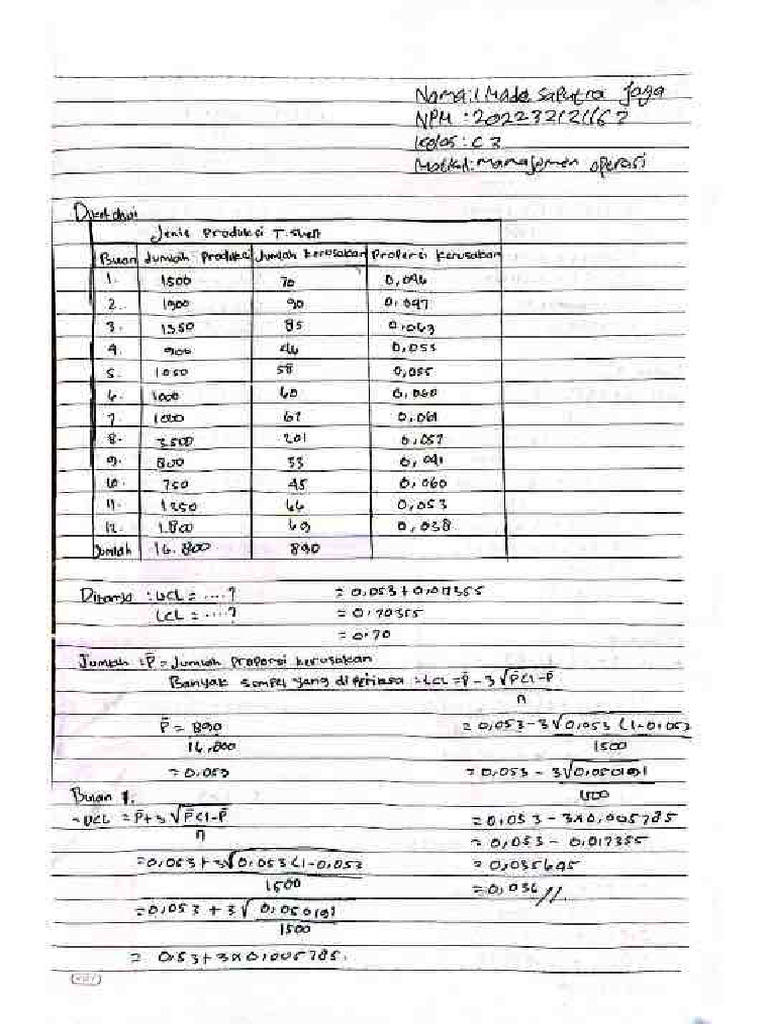 Nama : I Made Saputra Jaya
NPM : 202232121167
Kelas : C3
Matkul : Manajemen operasi
Diketahui
Jenis Produksi T. Shert
Bulan Jumlah Produksi Jumlah kerusakan Proporsi kerusakan
1. 1500 70 0,046
2. 1900 90 0,047
3. 1350 85 0,063
4. 900 46 0,055
5. 1050 58 0,055
6. 1000 60 0,060
7. 1000 61 0,061
8. 3500 201 0,057
9. 800 33 0,041
10. 750 45 0,060
11. 1250 66 0,053
12. 1.800 69 0,038
Jumlah 16.800 890
Ditanya : UCL = ....? = 0,053 + 0,017355
LCL = ....? = 0,70355
= 0.70
Jumlah : P̄ = Jumlah proporsi kerusakan
Banyak sampel yang diperiksa = LCL = P̄ - 3√P̄(1-P̄
n
P̄ = 890 = 0,053 - 3√0,053 (1-0,053
16,800 1500
= 0,053 = 0,053 - 3√0,050191
Bulan 1. 1500
UCL = P̄ + 3√P̄(1-P̄ = 0,053 - 3x0,005785
n = 0,053 - 0,017355
= 0,053 + 3√0,053 (1-0,053 = 0,035645
1500 = 0,036 //.
= 0,053 + 3√0,050191
1500
= 0,053 + 3x0,005785.